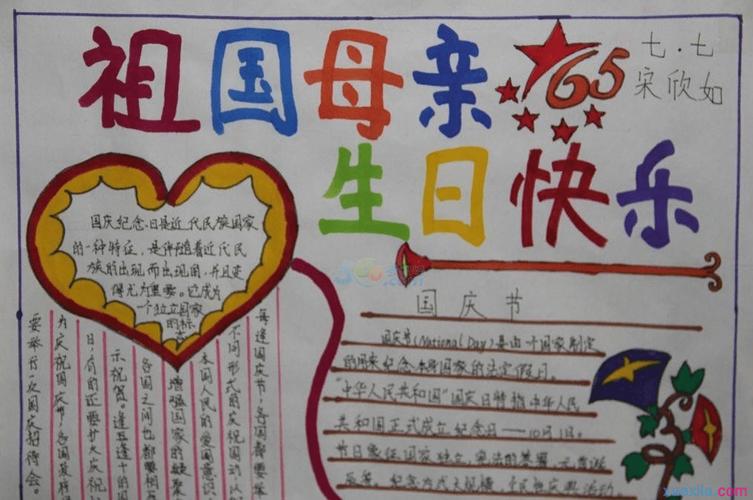 祖国母亲
65
七·七
宋欣如
生日快乐
国庆纪念日是近代民族国家
的一种特征，是伴随着近代民
族的出现而出现的，并且变
得尤为重要。它成为
一个独立国家
的标志
每逢国庆节，各国都要举
不同形式的庆祝活动，以
本国人民的爱国意识
增强国家的凝聚
各国之间也都要相
示祝贺。逢五逢十的国
日，有的还要扩大庆祝
为庆祝国庆节，各国政府
要举行一次国庆招待会。
国庆节
国庆节(National Day)是由一个国家制定
的用来纪念本身国家的法定假日。
"中华人民共和国"国庆日特指中华人民
共和国正式成立纪念日——10月1日。
节日象征国家独立、宪法的签署、元首诞
纪念方式大规模、庆典活动
xuexila.com